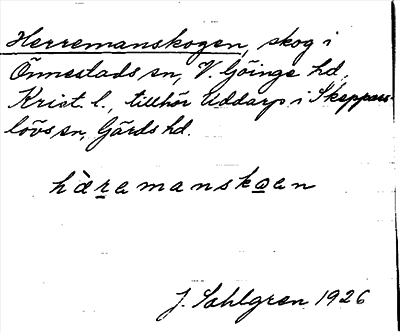 Herremanskogen, skog i
Önnestads sn, V. Göinge hd,
Krist. l., tillhör Uddarp i Skeppars-
lövs sn, Gärds hd.
hàremanskoen
J. Sahlgren 1926